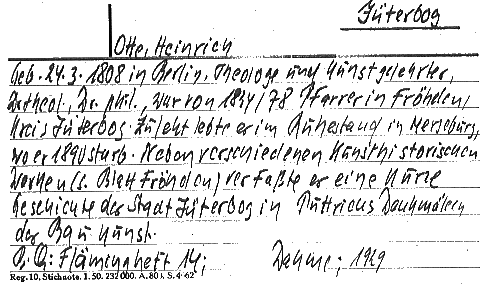 Jüterbog
Otte, Heinrich
geb. 24.3.1808 in Berlin, Theologe und Kunstgelehrter,
Dr. theol., Dr. phil., war von 1834/78 Pfarrer in Fröhden,
Kreis Jüterbog. Zuletzt lebte er im Ruhestand in Merseburg,
wo er 1890 starb. Neben verschiedenen Kunsthistorischen
Werken (s. Blatt Fröhden) verfaßte er eine Kurze
Geschichte der Stadt Jüterbog in Puttrichs Denkmälern
der Baukunst.
Fläminghheft 14; Dahme; 1929
Reg. 10, Stichnote. I. 50. 232 000. A. 80 S. 4-62